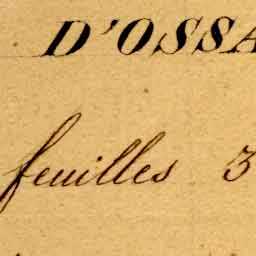 D'OSSA
feuilles 3